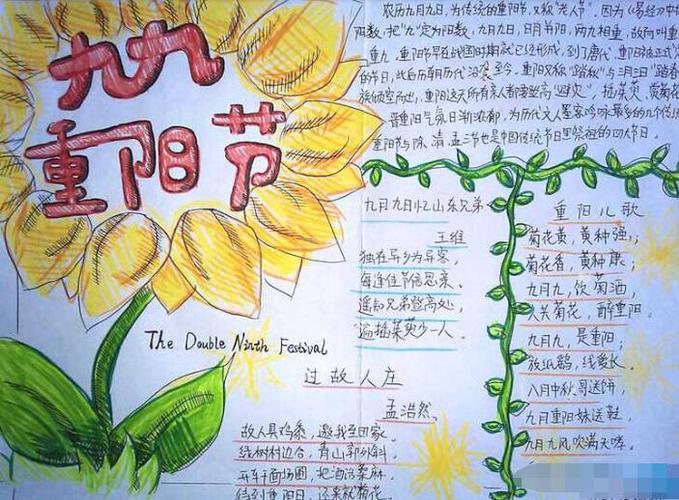 九九
重阳节
农历九月九日,为传统的重阳节,又称"老人节"。因为《易经》中
阳数,把"九"定为阳数,九月九日,日月节阳,两九相重,故而叫重
重九,重阳节早在战国时期就已经形成,到了唐代,重阳被正式定
的节日,此后历朝历代沿袭至今。重阳又称"踏秋"与三月三日"踏春
族倾室而出,重阳这天所有亲人都要登高"避灾",插茱萸、赏菊花
晋重阳气氛日渐浓郁,为历代文人墨客吟咏最多的几个传统
重阳节与除、清、盂三节也是中国传统节日里祭祖的四大节日。
九月九日忆山东兄弟
王维
独在异乡为异客,
每逢佳节倍思亲。
遥知兄弟登高处,
遍插茱萸少一人。
重阳儿歌
菊花黄,黄种强;
菊花香,黄种康;
九月九,饮菊酒,
人共菊花,醉重阳。
九月九,是重阳;
放纸鹞,线爱长。
八月中秋哥送饼,
九月重阳妹送鞋,
九月九风吹满天哮。
The Double Ninth Festival
过故人庄
孟浩然
故人具鸡黍,邀我至田家。
绿树村边合,青山郭外斜。
开轩面场圃,把酒话桑麻。
待到重阳日,还来就菊花。